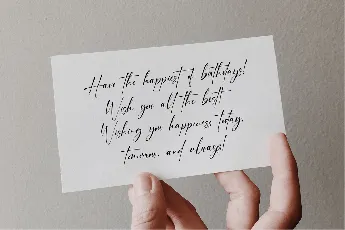 Have the happiest of bathdays!
Wish you all the best! -
Wishing you happiness today,
tomorrow, and always!